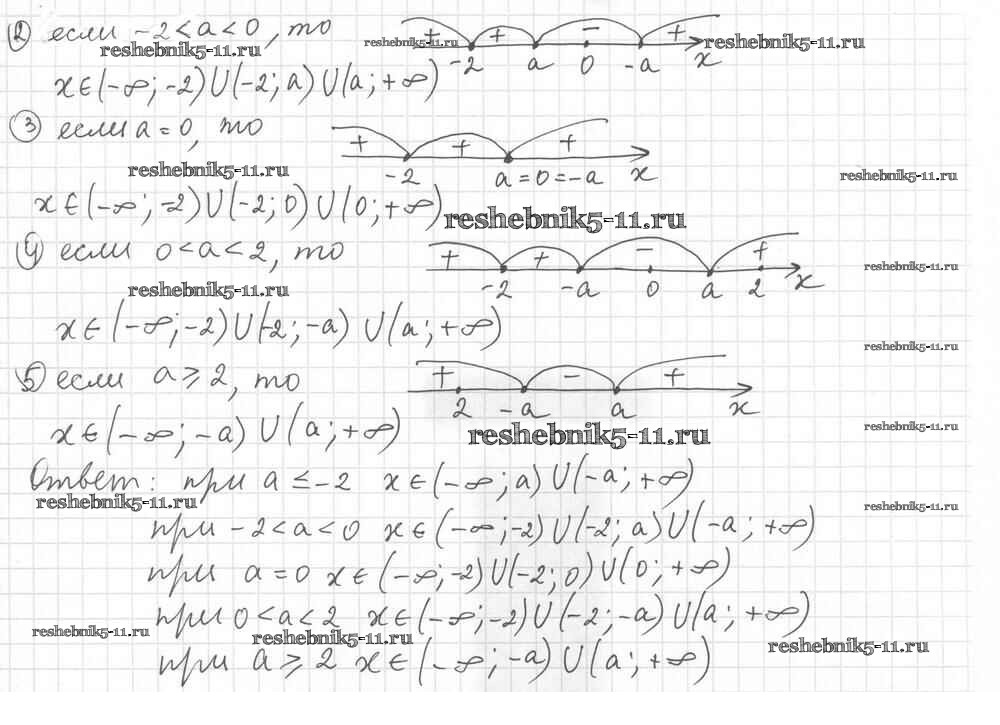 ② если -2<a<0, то + + - + -2 a 0 -a x
reshebnik5-11.ru reshebnik5-11.ru reshebnik5-11.ru
x∈(-∞;-2)∪(-2;a)∪(a;+∞)
③ если a=0, то + + + -2 a=0=-a x
reshebnik5-11.ru reshebnik5-11.ru
x∈(-∞;-2)∪(-2;0)∪(0;+∞) reshebnik5-11.ru
④ если 0<a<2, то + + - + -2 -a 0 a 2 x
reshebnik5-11.ru reshebnik5-11.ru
x∈(-∞;-2)∪(-2;-a)∪(a;+∞)
reshebnik5-11.ru
⑤ если a≥2, то + - + 2 -a a x
x∈(-∞;-a)∪(a;+∞) reshebnik5-11.ru reshebnik5-11.ru
Ответ: при a≤-2 x∈(-∞;a)∪(-a;+∞)
reshebnik5-11.ru reshebnik5-11.ru
при -2<a<0 x∈(-∞;-2)∪(-2;a)∪(-a;+∞)
при a=0 x∈(-∞;-2)∪(-2;0)∪(0;+∞)
при 0<a<2 x∈(-∞;-2)∪(-2;-a)∪(a;+∞)
reshebnik5-11.ru reshebnik5-11.ru reshebnik5-11.ru
при a≥2 x∈(-∞;-a)∪(a;+∞)